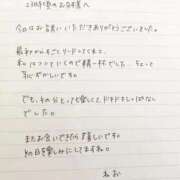 2回目のお客様へ
今日はお誘いいただきありがとうございました。
最初からすごくリードってくれて、
私はついていくので精一杯でした。ちょっと
恥ずかしいです。
でも、その分とっても楽しくてドキドキしっぱなし
でした。
またお会いできたら嬉しいです。
その日を楽しみにしてますね。
ねお